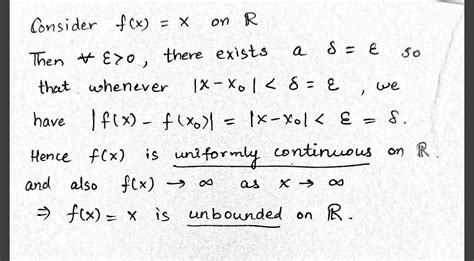 Consider f(x) = x on ℝ
Then ∀ ε>0, there exists a δ = ε so
that whenever |x-x₀| < δ = ε, we
have |f(x) - f(x₀)| = |x-x₀| < ε = δ.
Hence f(x) is uniformly continuous on ℝ.
and also f(x) → ∞ as x → ∞
⇒ f(x) = x is unbounded on ℝ.